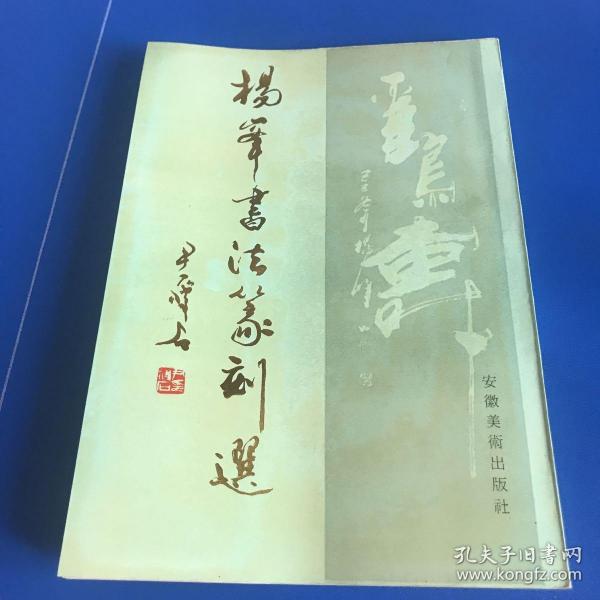 楊峯書法篆刻選
尹瘦石
安徽美術出版社
孔夫子旧书网
www.kongfz.com